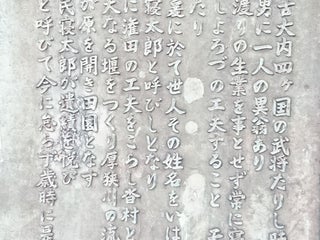 古大内四ヶ国の武将たりし
男に一人の異翁あり
渡りの生業を事とせず常に
しよろづの工夫すること
たり
爰に於て世人その姓名をいは
寝太郎と呼びしとなり
に潅田の工夫をこらし沓村と
大なる堰をつくり厚狭川の流
が原を開き田園となす
民寝太郎が遺績を悦び
と呼びて今に怠らず歳時に